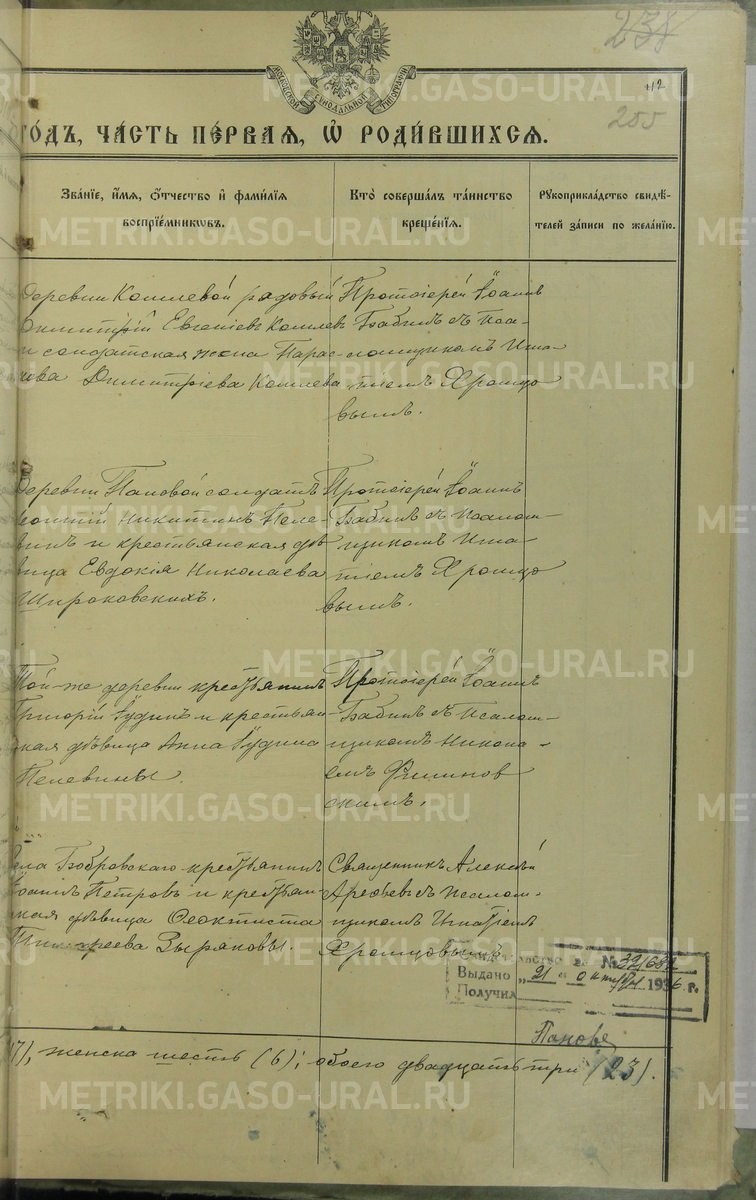 238
112
255
МОСКОВСКОЙ СѴНОДАЛЬНОЙ ТИПОГРАФІИ
ГОДЪ, ЧАСТЬ ПЕРВАЯ, Ѡ РОДИВШИХСЯ.
Званіе, имя, отчество и фамилія воспріемниковъ.
Кто совершалъ таинство крещенія.
Рукоприкладство свидѣтелей записи по желанію.
Деревни Кошлевой рядовый
Димитрій Евгеніевъ Кошлевъ
и солдатская жена Парас-
кова Димитріева Кошлева
Протоіерей Іоаннъ
Бабинъ съ Пса-
ломщикомъ Игна-
тіемъ Хромцо
вымъ.
Деревни Пановой солдатъ
Никитинъ Пеле-
винъ и крестьянская дѣ
вица Евдокія Николаева
Широковскихъ.
Протоіерей Іоаннъ
Бабинъ съ Псалом-
щикомъ Игна-
тіемъ Хромцо
вымъ.
Той-же деревни крестьянинъ
Григорій Іудинъ и крестьян-
ская дѣвица Анна Іудина
Пелевины.
Протоіерей Іоаннъ
Бабинъ съ Псалом-
щикомъ Никола-
емъ
скимъ.
Села Бобровскаго крестьянинъ
Іоаннъ Петровъ и крестьян-
ская дѣвица Феоктиста
Зыряновы.
Священникъ Алексѣй
Арефьевъ съ Псалом-
щикомъ Игнатіемъ
Хромцовымъ.
за № 321682
Выдано „21" октября 1936 г.
Получил
Панова
17), женска шесть (6); обоего двадцать три (23).
METRIKI.GASO-URAL.RU